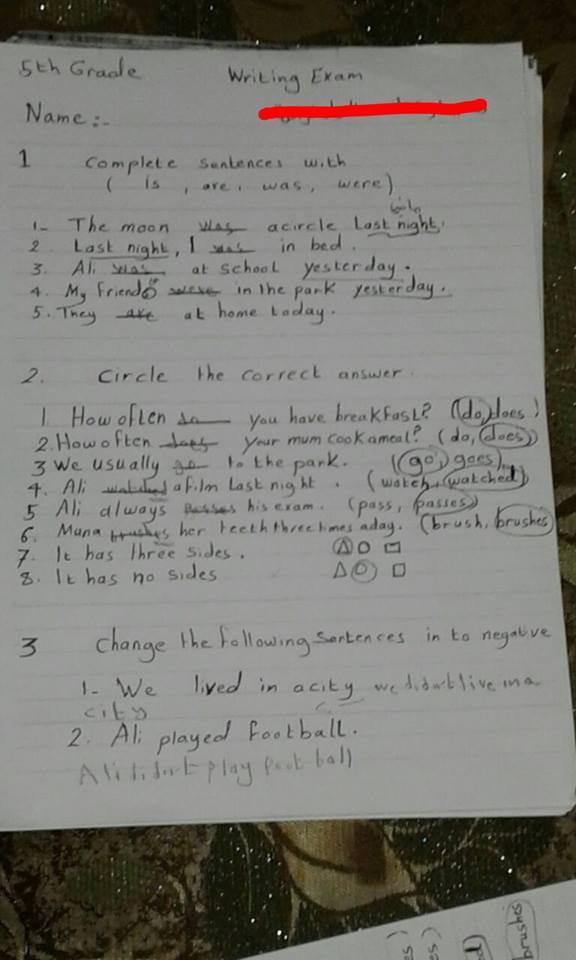 5th Grade Writing Exam
Name:-
1 Complete sentences with
( is, are, was, were)
1- The moon was acircle Last night.
2. Last night, I was in bed.
3. Ali was at school yesterday.
4. My friends were in the park yesterday.
5. They are at home today.
2. Circle the correct answer.
1. How often do you have breakfast? (do, does)
2. How often does your mum cook ameal? (do, does)
3 We usually go to the park. (go, goes)
4. Ali watched afilm Last night. (watch, watched)
5 Ali always passes his exam. (pass, passes)
6. Muna brushes her teeth three times aday. (brush, brushes
7. It has three sides. △ ○ ▭
8. It has no sides △ ○ □
3 Change the following sentences in to negative
1- We lived in acity we didn't live in a
city
2. Ali played football.
Ali didn't play foot ball
brushes